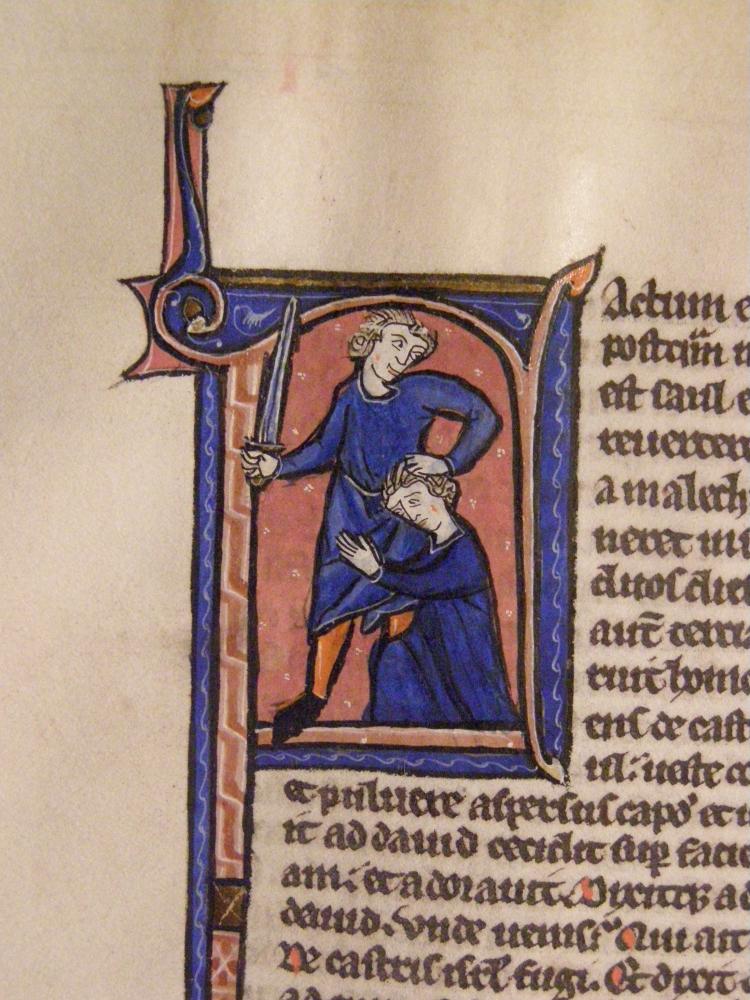 Factum e
postqm̃ m
est saul e
reuertere
amalech
neret in
duos die
aut̃ tercia
ruit homo
ens de cast
ul: ueste co
et puluere aspersus capđ et
it ad dauid cecidit sup facie
am: et adorauit. Dixitq; ad
dauid. Vnde uenis? Qui ait
De castris isr̃l fugi. Et dixit